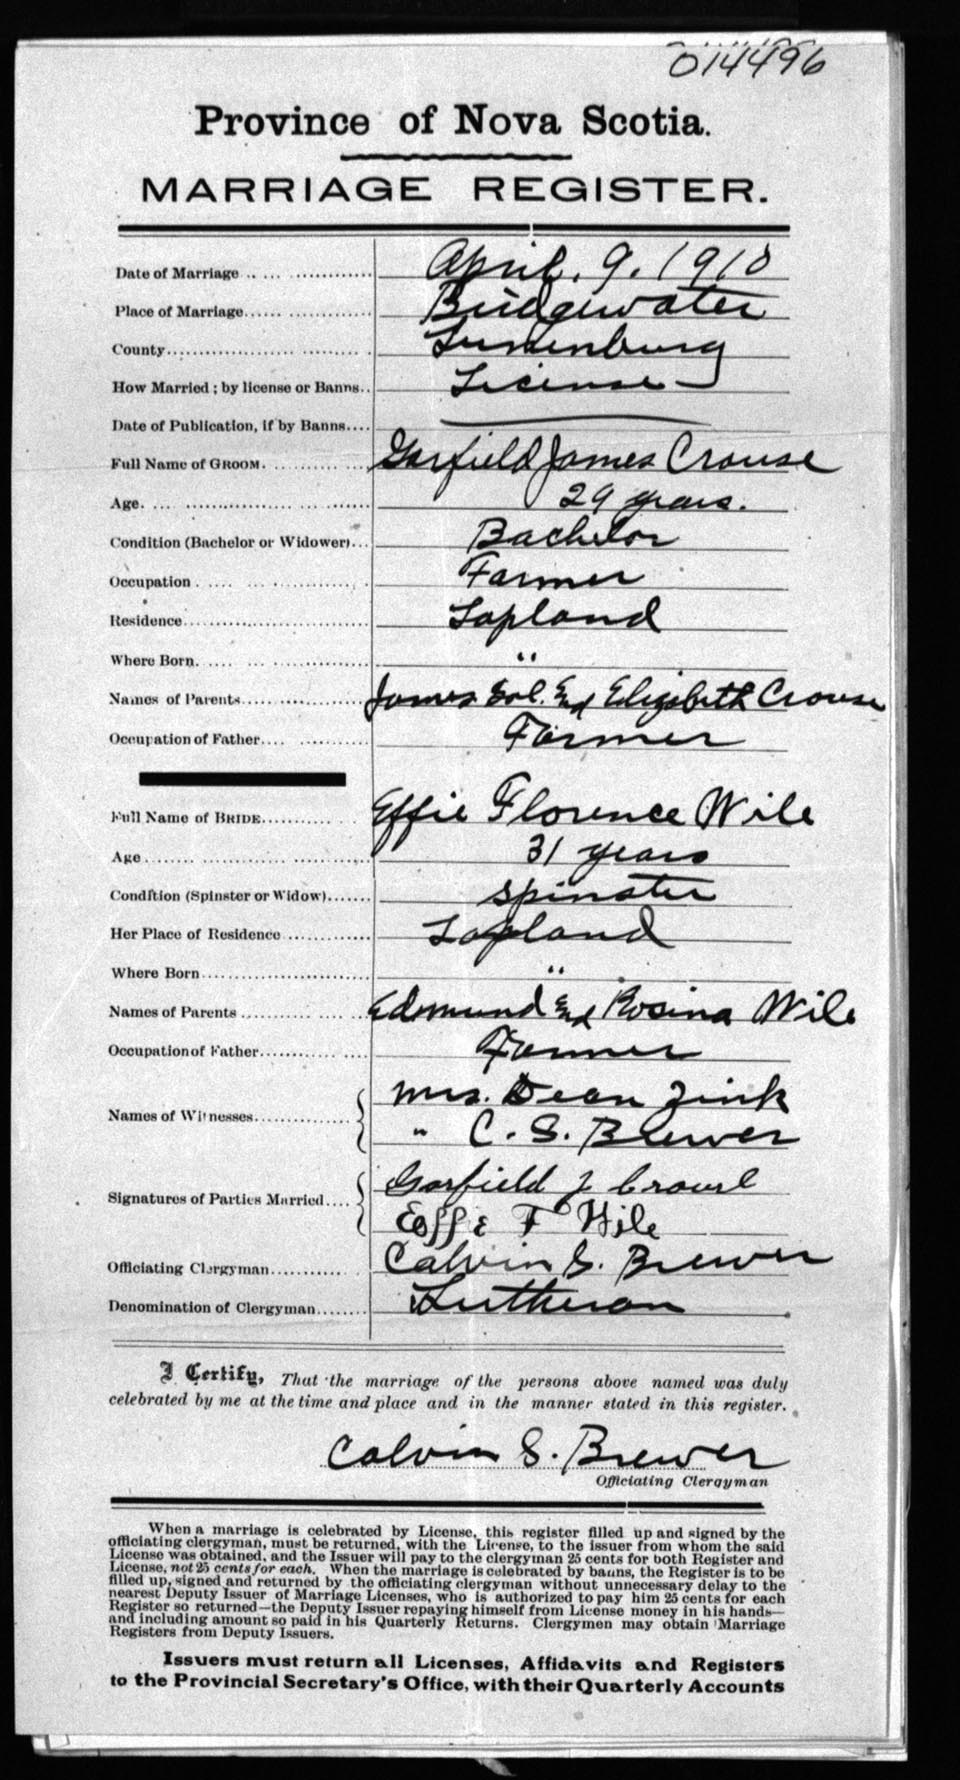 014496
Province of Nova Scotia.
MARRIAGE REGISTER.
Date of Marriage April. 9. 1910
Place of Marriage Bridgewater
County Lunenburg
How Married; by license or Banns License
Date of Publication, if by Banns
Full Name of GROOM. Garfield James Crouse
Age. 29 years.
Condition (Bachelor or Widower) Bachelor
Occupation Farmer
Residence Lapland
Where Born. "
Names of Parents James End Elizabeth Crouse
Occupation of Father Farmer
Full Name of BRIDE Effie Florence Wile
Age 31 years
Condition (Spinster or Widow) Spinster
Her Place of Residence Lapland
Where Born "
Names of Parents Edmund End Rosina Wile
Occupation of Father Farmer
Names of Witnesses Mrs. Dean Zink
" C. S. Brewer
Signatures of Parties Married Garfield J Crouse
Effie F Wile
Officiating Clergyman Calvin S. Brewer
Denomination of Clergyman Lutheran
I Certify, That the marriage of the persons above named was duly
celebrated by me at the time and place and in the manner stated in this register.
Calvin S. Brewer
Officiating Clergyman
When a marriage is celebrated by License, this register filled up and signed by the
officiating clergyman, must be returned, with the License, to the issuer from whom the said
License was obtained, and the Issuer will pay to the clergyman 25 cents for both Register and
License, not 25 cents for each. When the marriage is celebrated by banns, the Register is to be
filled up, signed and returned by the officiating clergyman without unnecessary delay to the
nearest Deputy Issuer of Marriage Licenses, who is authorized to pay him 25 cents for each
Register so returned—the Deputy Issuer repaying himself from License money in his hands—
and including amount so paid in his Quarterly Returns. Clergymen may obtain Marriage
Registers from Deputy Issuers.
Issuers must return all Licenses, Affidavits and Registers
to the Provincial Secretary's Office, with their Quarterly Accounts